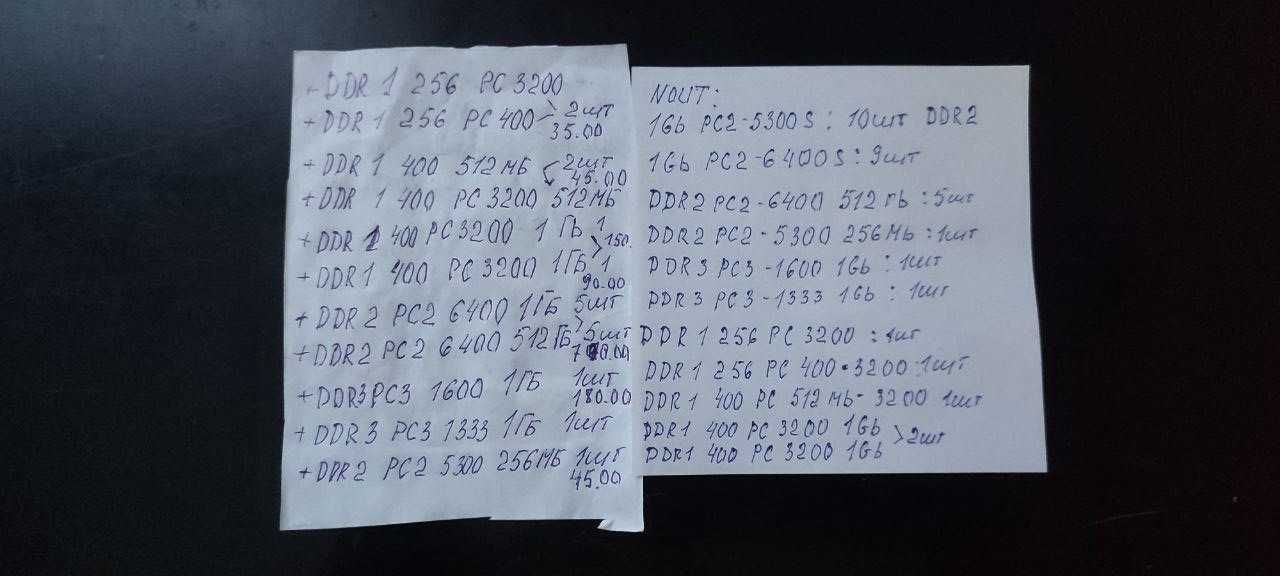 + DDR 1 256 PC 3200
+ DDR 1 256 PC 400 > 2шт
35.00
+ DDR 1 400 512 МБ < 2шт
45.00
+ DDR 1 400 PC 3200 512 МБ
+ DDR 1 400 PC3200 1 ГБ 1
> 150.
+ DDR 1 400 PC 3200 1ГБ 1
90.00
+ DDR 2 PC2 6400 1ГБ 5шт
+ DDR2 PC2 6400 512ГБ > 5шт
+ DDR3 PC3 1600 1ГБ 1шт
180.00
+ DDR 3 PC3 1333 1ГБ 1шт
+ DDR2 PC2 5300 256МБ 1шт
45.00
NOUT:
1Gb PC2-5300S : 10шт DDR2
1Gb PC2-6400S : 9шт
DDR2 PC2-6400 512 гb : 5шт
DDR2 PC2-5300 256Mb : 1шт
DDR3 PC3-1600 1Gb : 1шт
DDR3 PC3-1333 1Gb : 1шт
DDR 1 256 PC 3200 : 1шт
DDR 1 256 PC 400-3200 1шт
DDR1 400 PC 512 Mb-3200 1шт
DDR1 400 PC 3200 1Gb
> 2шт
DDR1 400 PC 3200 1Gb